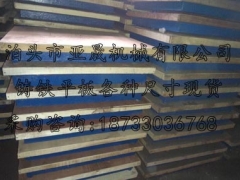 泊头市亚晟机械有限公司
铸铁平板各种尺寸现货
采购咨询:18733036768